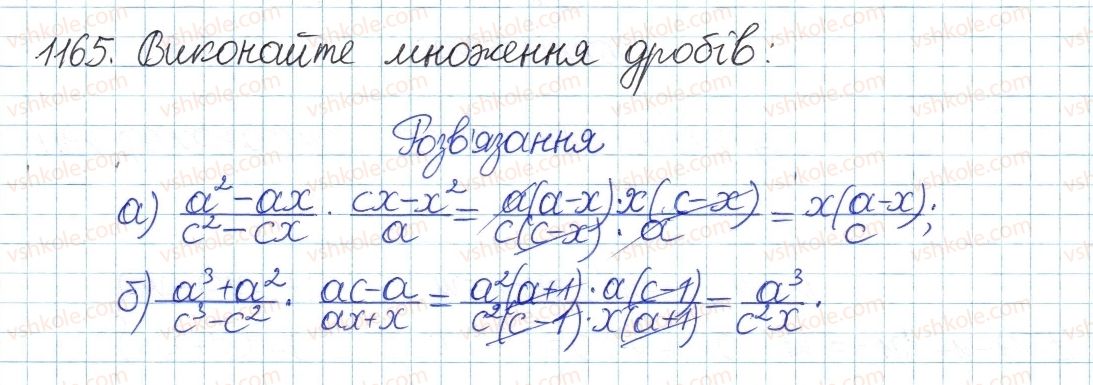 1165. Виконайте множення дробів:
Розв'язання
а) (a² − ax)/(c² − cx) · (cx − x²)/a = (a(a−x)·x(c−x))/(c(c−x)·a) = x(a−x)/c;
б) (a³+a²)/(c³−c²) · (ac−a)/(ax+x) = (a²(a+1)·a(c−1))/(c²(c−1)·x(a+1)) = a³/(c²x).